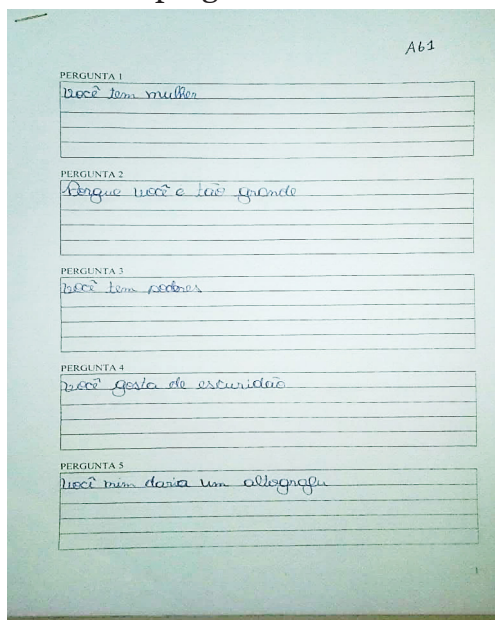 A61
PERGUNTA 1
você tem mulher
PERGUNTA 2
Porque você e tão grande
PERGUNTA 3
você tem poderes
PERGUNTA 4
você gosta de escuridão
PERGUNTA 5
você mim daria um altografu
1